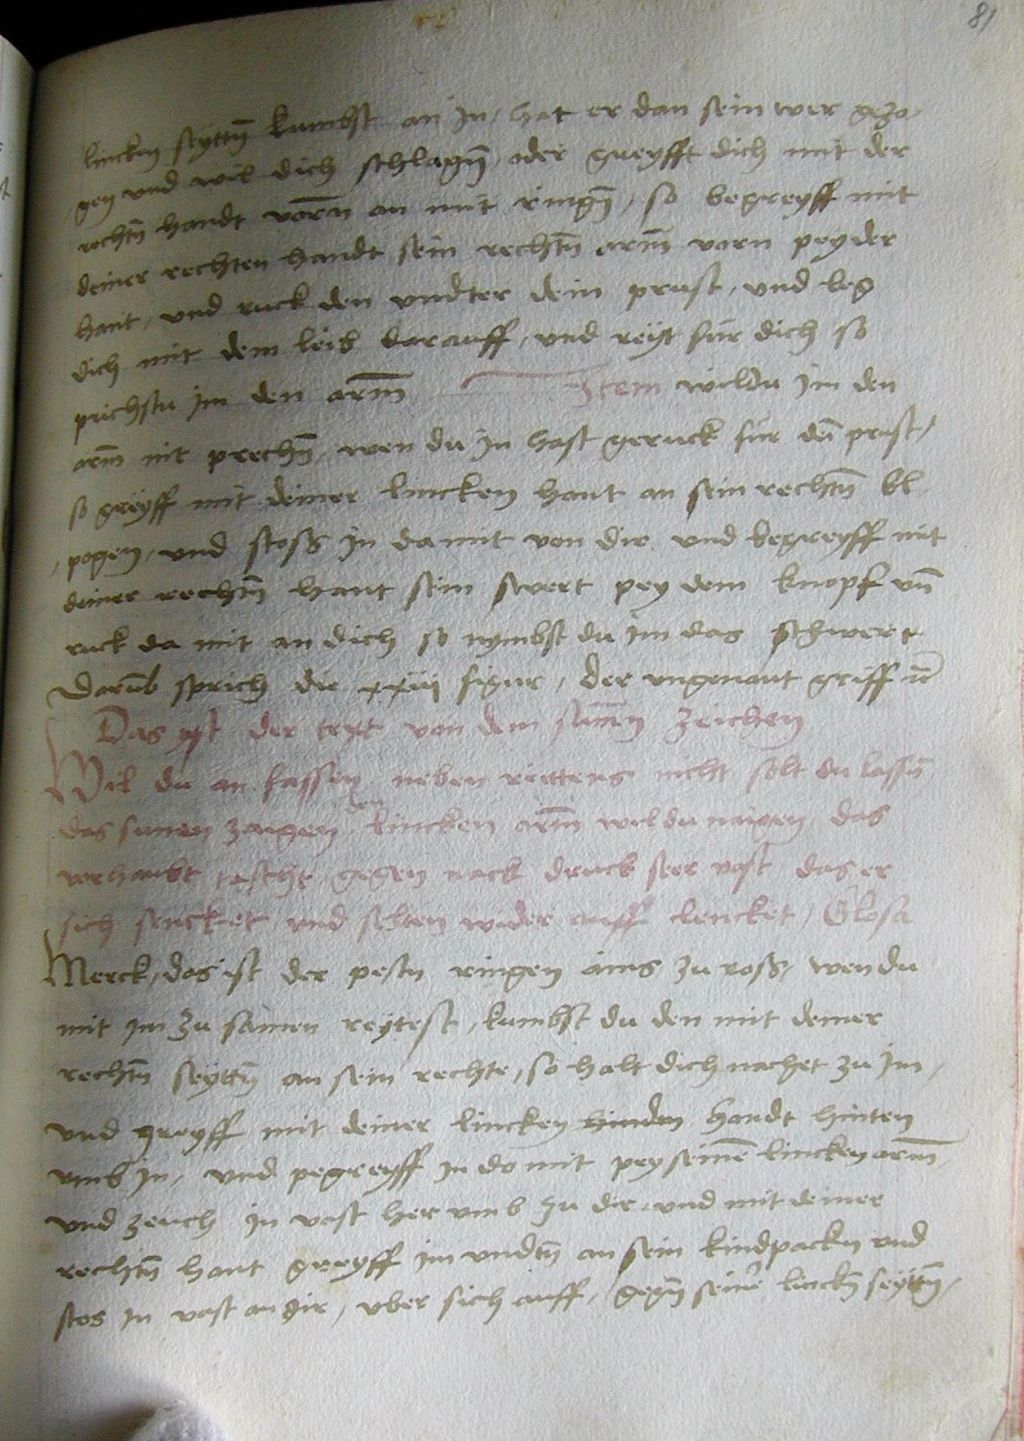 81
lincken seyttn̄ kumbst an in / hat er dan sein wer gezo-
gen vnd wil dich schlagn̄ / oder greyfft dich mit der
rechtn̄ handt vorn̄ an mit ringn̄ / so begreyff mit
deiner rechten handt sein rechtn̄ arm̄ vorn pey der
hant / vnd ruck den vndter dein prust / vnd leg
dich mit dem leib darauff / vnd reyt für dich so
prichstu im den arm̄ Item wildu im den
arm̄ nit prechn̄ / wen du in hast geruck für dein̄ prust /
so greyff mit deiner lincken hant an sein rechtn̄ el
pogen / vnd stoss in da mit von dir vnd begreyff mit
deiner rechtn̄ hant sein swert pey dem knopf vn̄
ruck da mit an dich so nymbst du im das schwert
Darūb sprich die xxiii figur / der vngenant griff ꝛc̄
Das yst der text von dem sunnen zeichen
Wil du an fassen neben reittens nicht solt du lassn̄
das sunen zaigen den lincken arm̄ wildu naigen das
vorhaubt tascht gegen nack druck seer vast das er
sich sencket vnd selten wider auff clencket / Glosa
Merck / das ist der pestn ringen ains zu ross / wen du
mit im zu samen reytest / kumbst du den mit deiner
rechtn̄ seyttn̄ an sein rechte / so halt dich nachet zu im /
vnd greyff mit deiner lincken hinden handt hinten
vmb in / vnd pegreyff in do mit pey seinē lincken arm̄
vnd zeuch in vast her vmb zu dir / vnd mit deiner
rechtn̄ hant greyff im vndtn̄ an sein kindpackn vnd
stos in vast an dir / vber sich auff / gegn̄ seinē linckn̄ seyttn̄ /